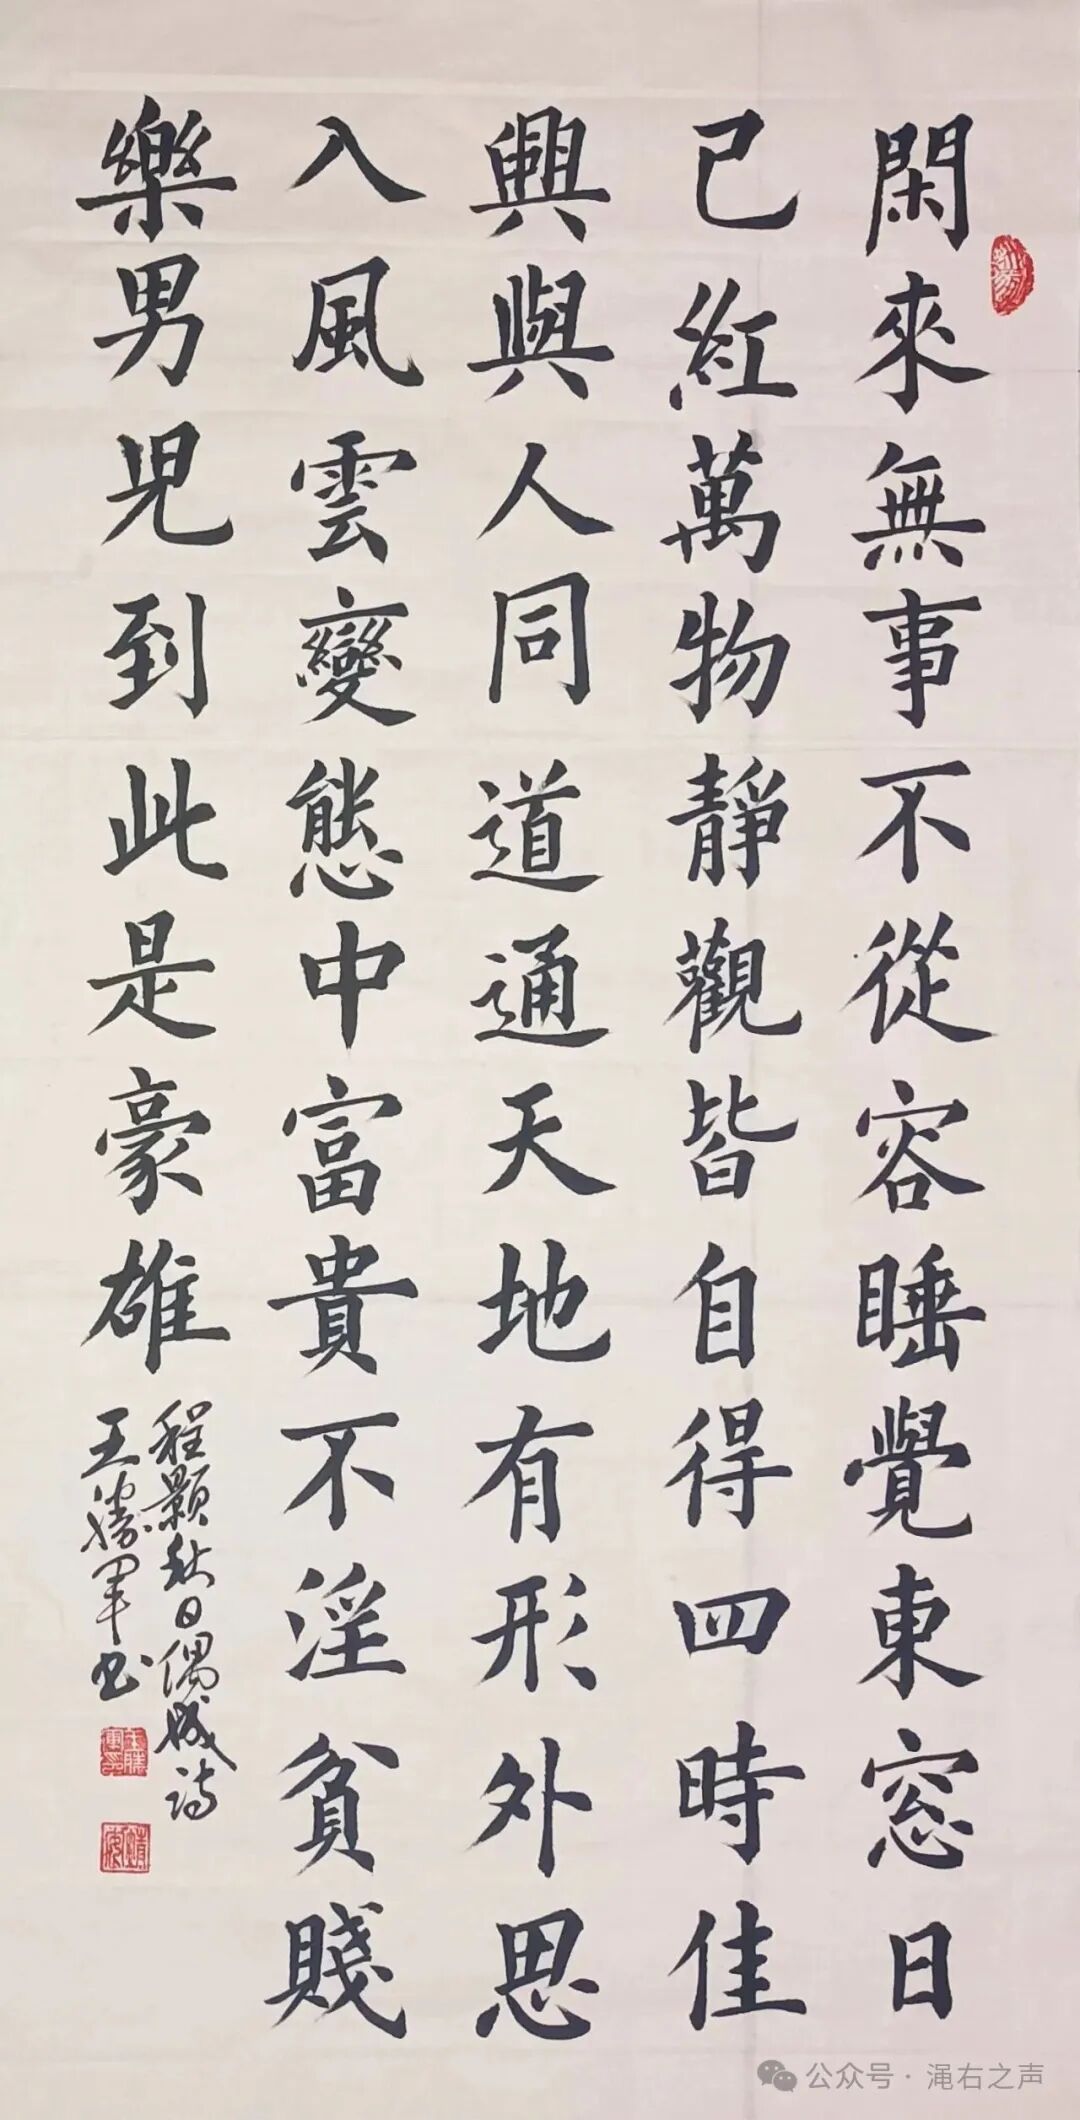 閑來無事不從容睡覺東窓日
已紅萬物靜觀皆自得四時佳
興與人同道通天地有形外思
入風雲變態中富貴不淫貧賤
樂男児到此是豪雄
程顥秋日偶成诗
王勝軍书
公众号·渑右之声